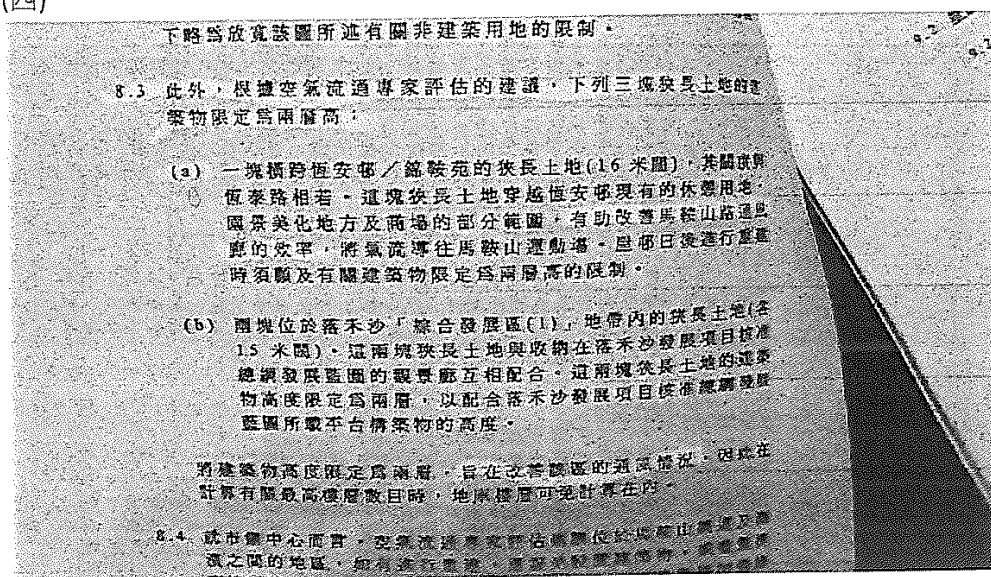 (四)
下略為放寬該圖所述有關非建築用地的限制。
8.3 此外，根據空氣流通專家評估的建議，下列三塊狹長土地的建
築物限定為兩層高：
(a) 一塊橫跨恆安邨／錦鞍苑的狹長土地(16 米闊)，其闊度與
恆泰路相若。這塊狹長土地穿越恆安邨現有的休憩用地、
園景美化地方及商場的部分範圍，有助改善馬鞍山路通風
廊的效率，將氣流導往馬鞍山運動場。屋邨日後進行重建
時須顧及有關建築物限定為兩層高的限制。
(b) 兩塊位於落禾沙「綜合發展區(1)」地帶內的狹長土地(各
15 米闊)。這兩塊狹長土地與收納在落禾沙發展項目核准
總綱發展藍圖的觀景廊互相配合。這兩塊狹長土地的建築
物高度限定為兩層，以配合落禾沙發展項目核准總綱發展
藍圖所載平台構築物的高度。
將建築物高度限定為兩層，旨在改善該區的通風情況。因此在
計算有關最高樓層數目時，地庫樓層可免計算在內。
8.4 就市鎮中心而言，空氣流通專家評估
之間的地區，